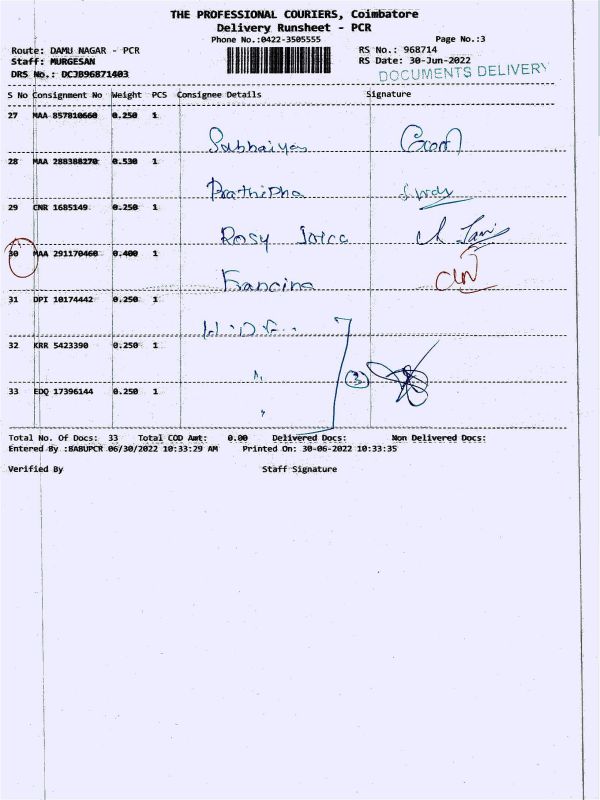 THE PROFESSIONAL COURIERS, Coimbatore
Delivery Runsheet - PCR
Phone No.:0422-3505555 Page No.:3
Route: DAMU NAGAR - PCR RS No.: 968714
Staff: MURGESAN RS Date: 30-Jun-2022
DRS No.: DCJB96871403 DOCUMENTS DELIVERY
S No Consignment No Weight PCS Consignee Details Signature
27 MAA 857810660 0.250 1
Subbaiyan
28 MAA 288388270 0.530 1
Prathipha
29 CNR 1685149 0.250 1
Rosy Joice
30 MAA 291170460 0.400 1
Francina
31 DPI 10174442 0.250 1
32 KRR 5423390 0.250 1
3
33 EDQ 17396144 0.250 1
Total No. Of Docs: 33 Total COD Amt: 0.00 Delivered Docs: Non Delivered Docs:
Entered By :BABUPCR 06/30/2022 10:33:29 AM Printed On: 30-06-2022 10:33:35
Verified By Staff Signature